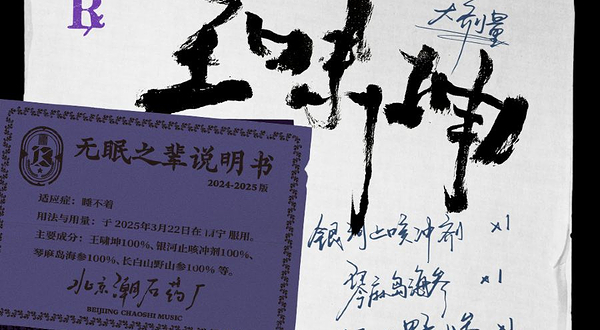 R
大剂量
王啸坤
无眠之辈说明书
2024-2025 版
适应症：睡不着
用法与用量：于 2025年3月22日在 宁 服用。
主要成分：王啸坤100%、银河止咳冲剂100%、
琴麻岛海参100%、长白山野山参100% 等。
北京潮石药厂
BEIJING CHAOSHI MUSIC
银河止咳冲剂 x1
琴麻岛海参 x1